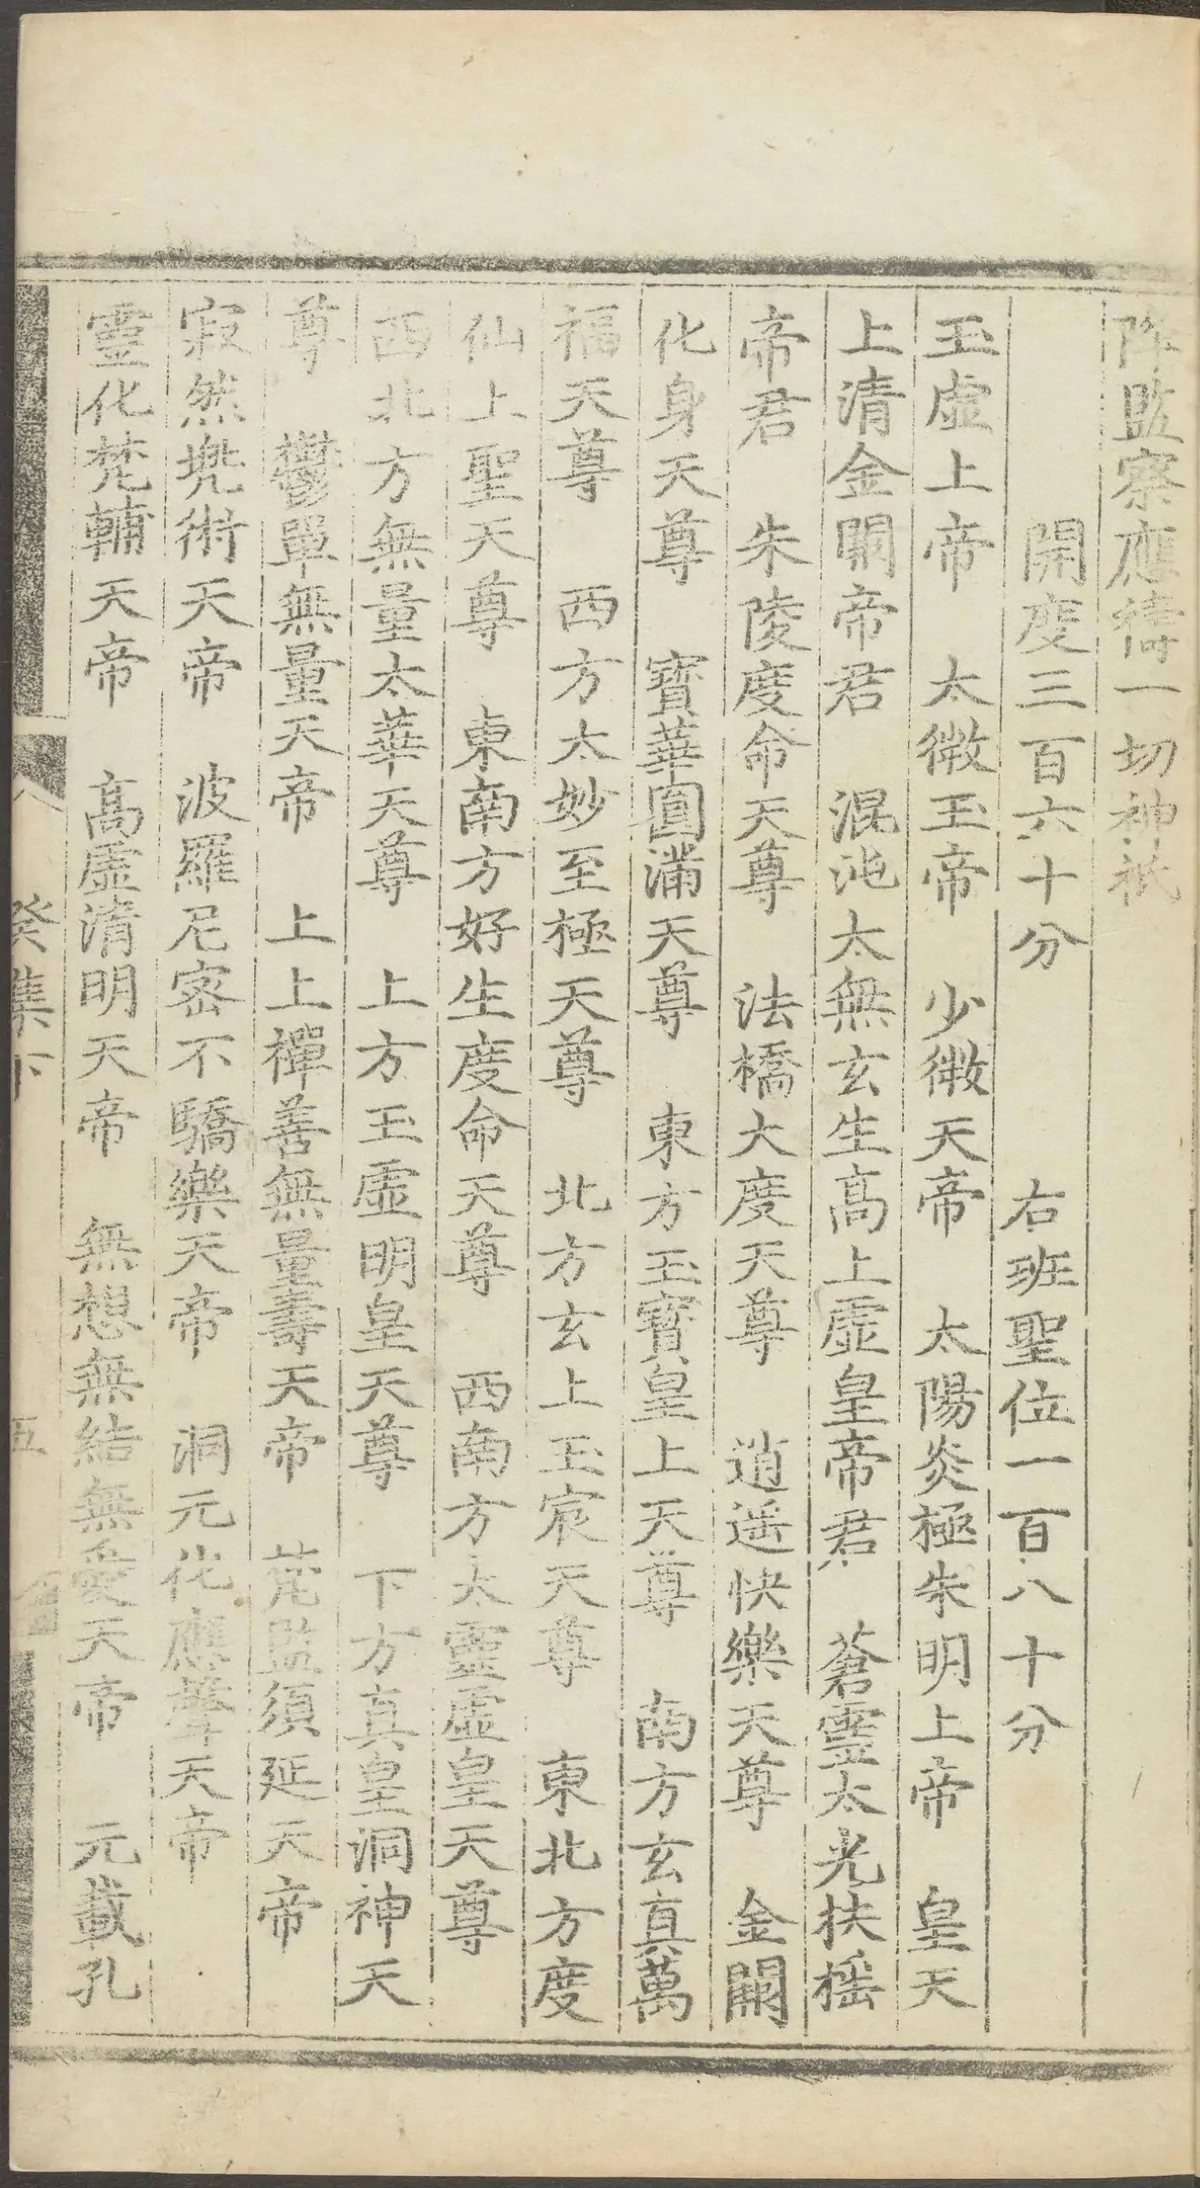 降監察應禱一切神祇
開度三百六十分　右班聖位一百八十分
玉虛上帝　太微玉帝　少微天帝　太陽炎極朱明上帝　皇天
上清金闕帝君　混沌太無玄生高上虛皇帝君　蒼靈太光扶搖
帝君　朱陵度命天尊　法橋大度天尊　逍遥快樂天尊　金闕
化身天尊　寶華圓滿天尊　東方玉寶皇上天尊　南方玄真萬
福天尊　西方太妙至極天尊　北方玄上玉宸天尊　東北方度
仙上聖天尊　東南方好生度命天尊　西南方太靈虛皇天尊
西北方無量太華天尊　上方玉虛明皇天尊　下方真皇洞神天
尊　鬱單無量天帝　上上禪善無量壽天帝　梵監須延天帝
寂然兠術天帝　波羅尼密不驕樂天帝　洞元化應聲天帝
靈化梵輔天帝　高虛清明天帝　無想無結無愛天帝　元載孔
癸集下　五